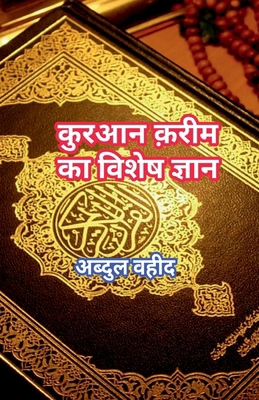 कुरआन क़रीम
का विशेष ज्ञान
अब्दुल वहीद